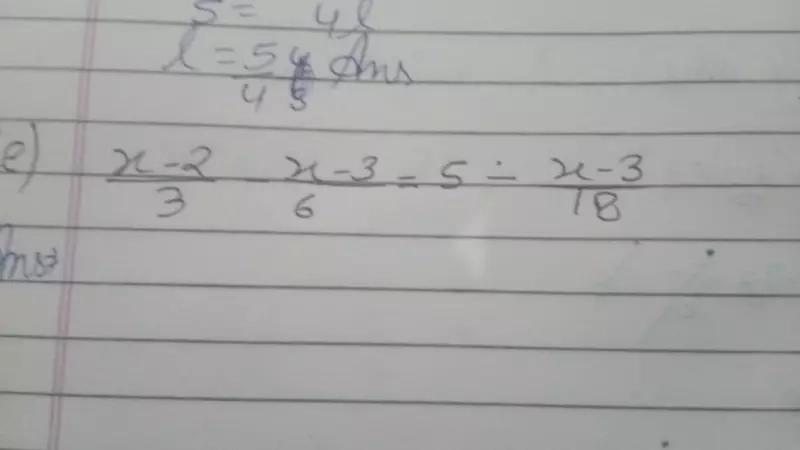 5 = 4l
l = 5/4 Ans
e) x-2/3 - x-3/6 = 5 - x-3/18
Ans⇒